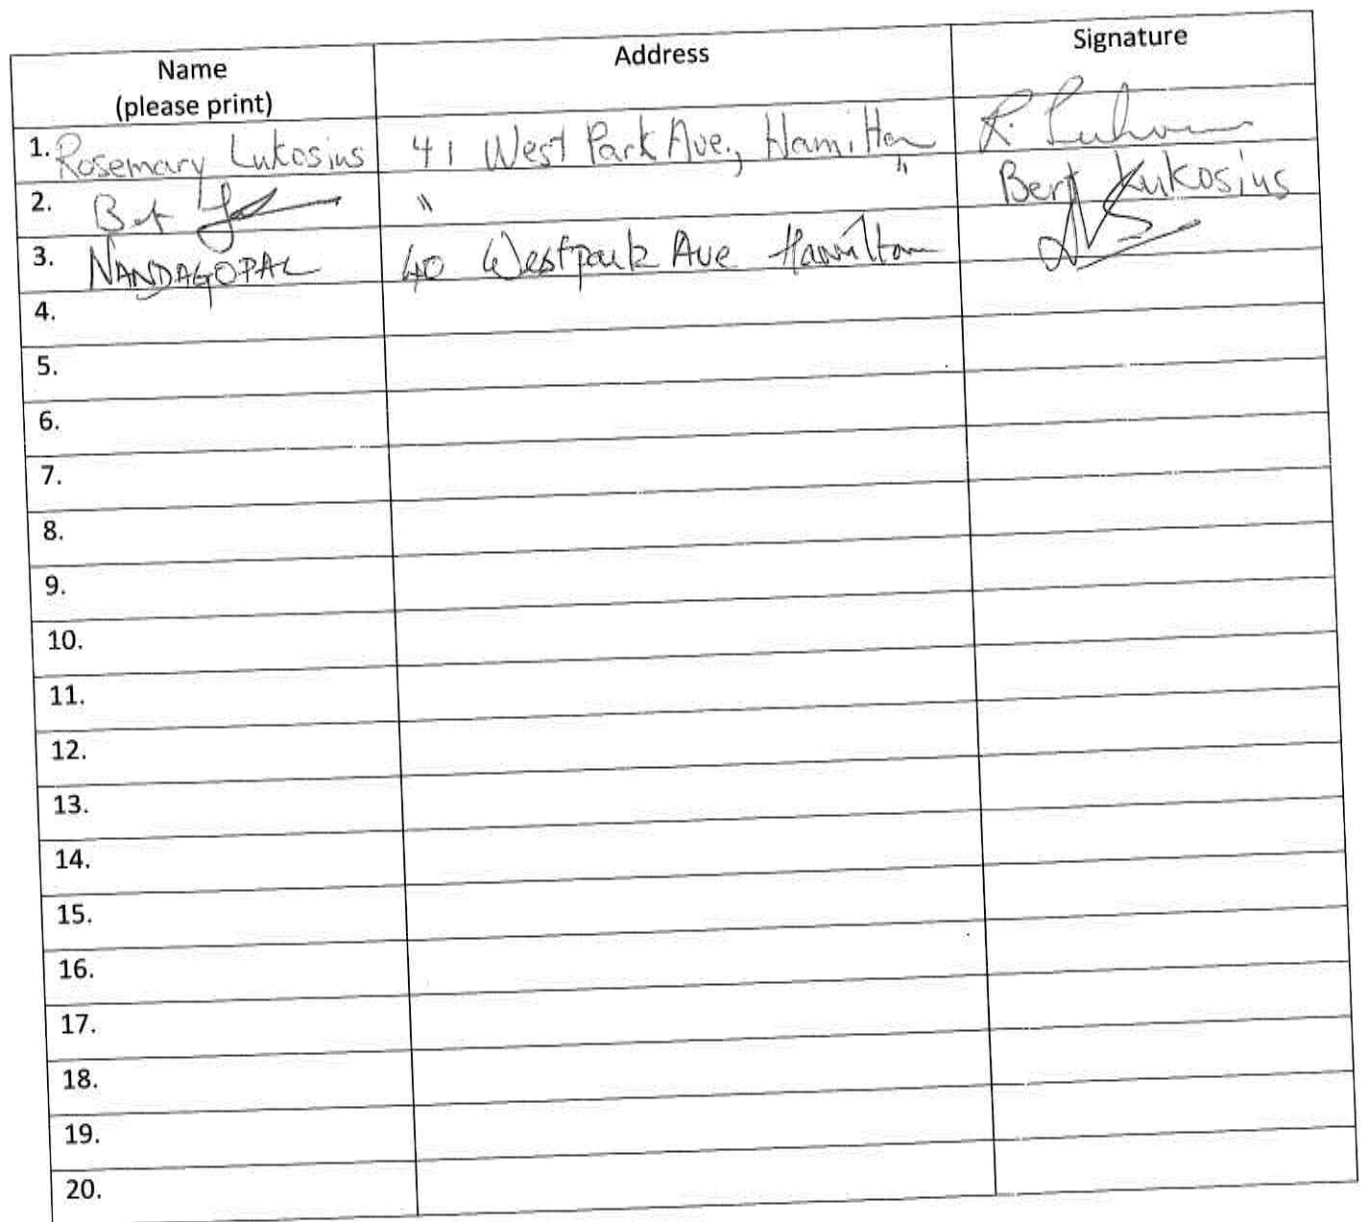 Name Address Signature
(please print)
1. Rosemary Lukosius 41 West Park Ave., Hamilton R.
2. Bert " " Bert Lukosius
3. NANDAGOPAL 40 Westpark Ave Hamilton
4.
5.
6.
7.
8.
9.
10.
11.
12.
13.
14.
15.
16.
17.
18.
19.
20.